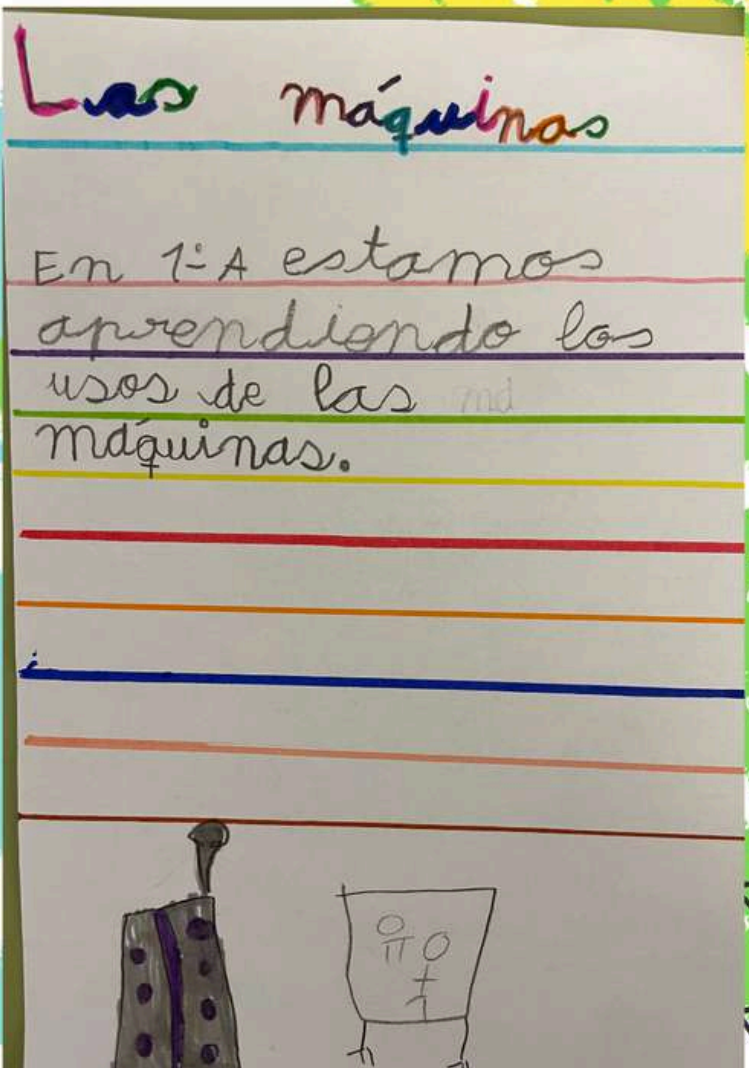 Las máquinas
En 1º A estamos
aprendiendo los
usos de las md
máquinas.